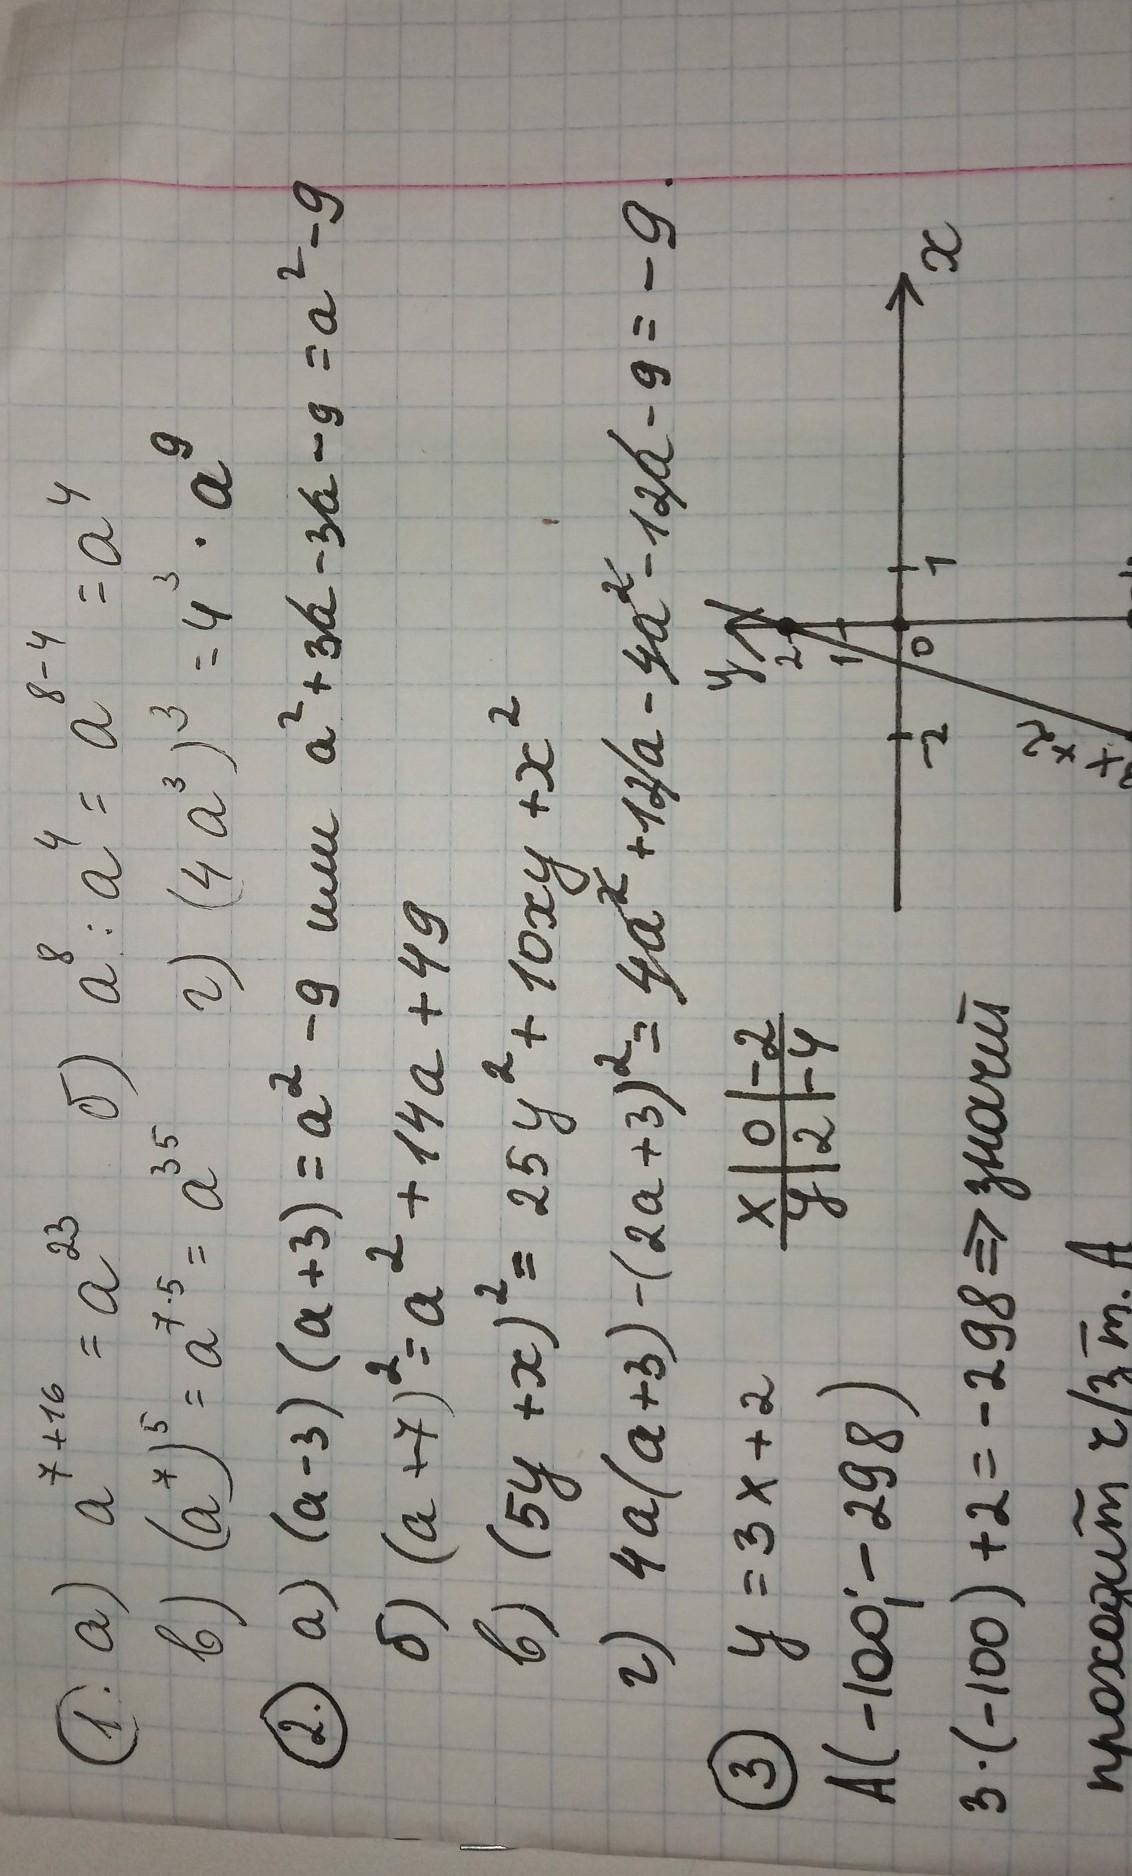 1. а) a^{7+16} = a^{23} б) a^8 : a^4 = a^{8-4} = a^4
в) (a^7)^5 = a^{7·5} = a^{35} г) (4a^3)^3 = 4^3 · a^9
2. а) (a-3)(a+3) = a^2-9 или a^2+3a-3a-9 = a^2-9
б) (a+7)^2 = a^2+14a+49
в) (5y+x)^2 = 25y^2+10xy+x^2
г) 4a(a+3)-(2a+3)^2 = 4a^2+12a-4a^2-12a-9 = -9.
3 y = 3x+2
x | 0 | -2
y | 2 | -4
A(-100; -298)
3·(-100)+2 = -298 => значит
проходит ч/з т. A
y
2
1
0
1
-2
x